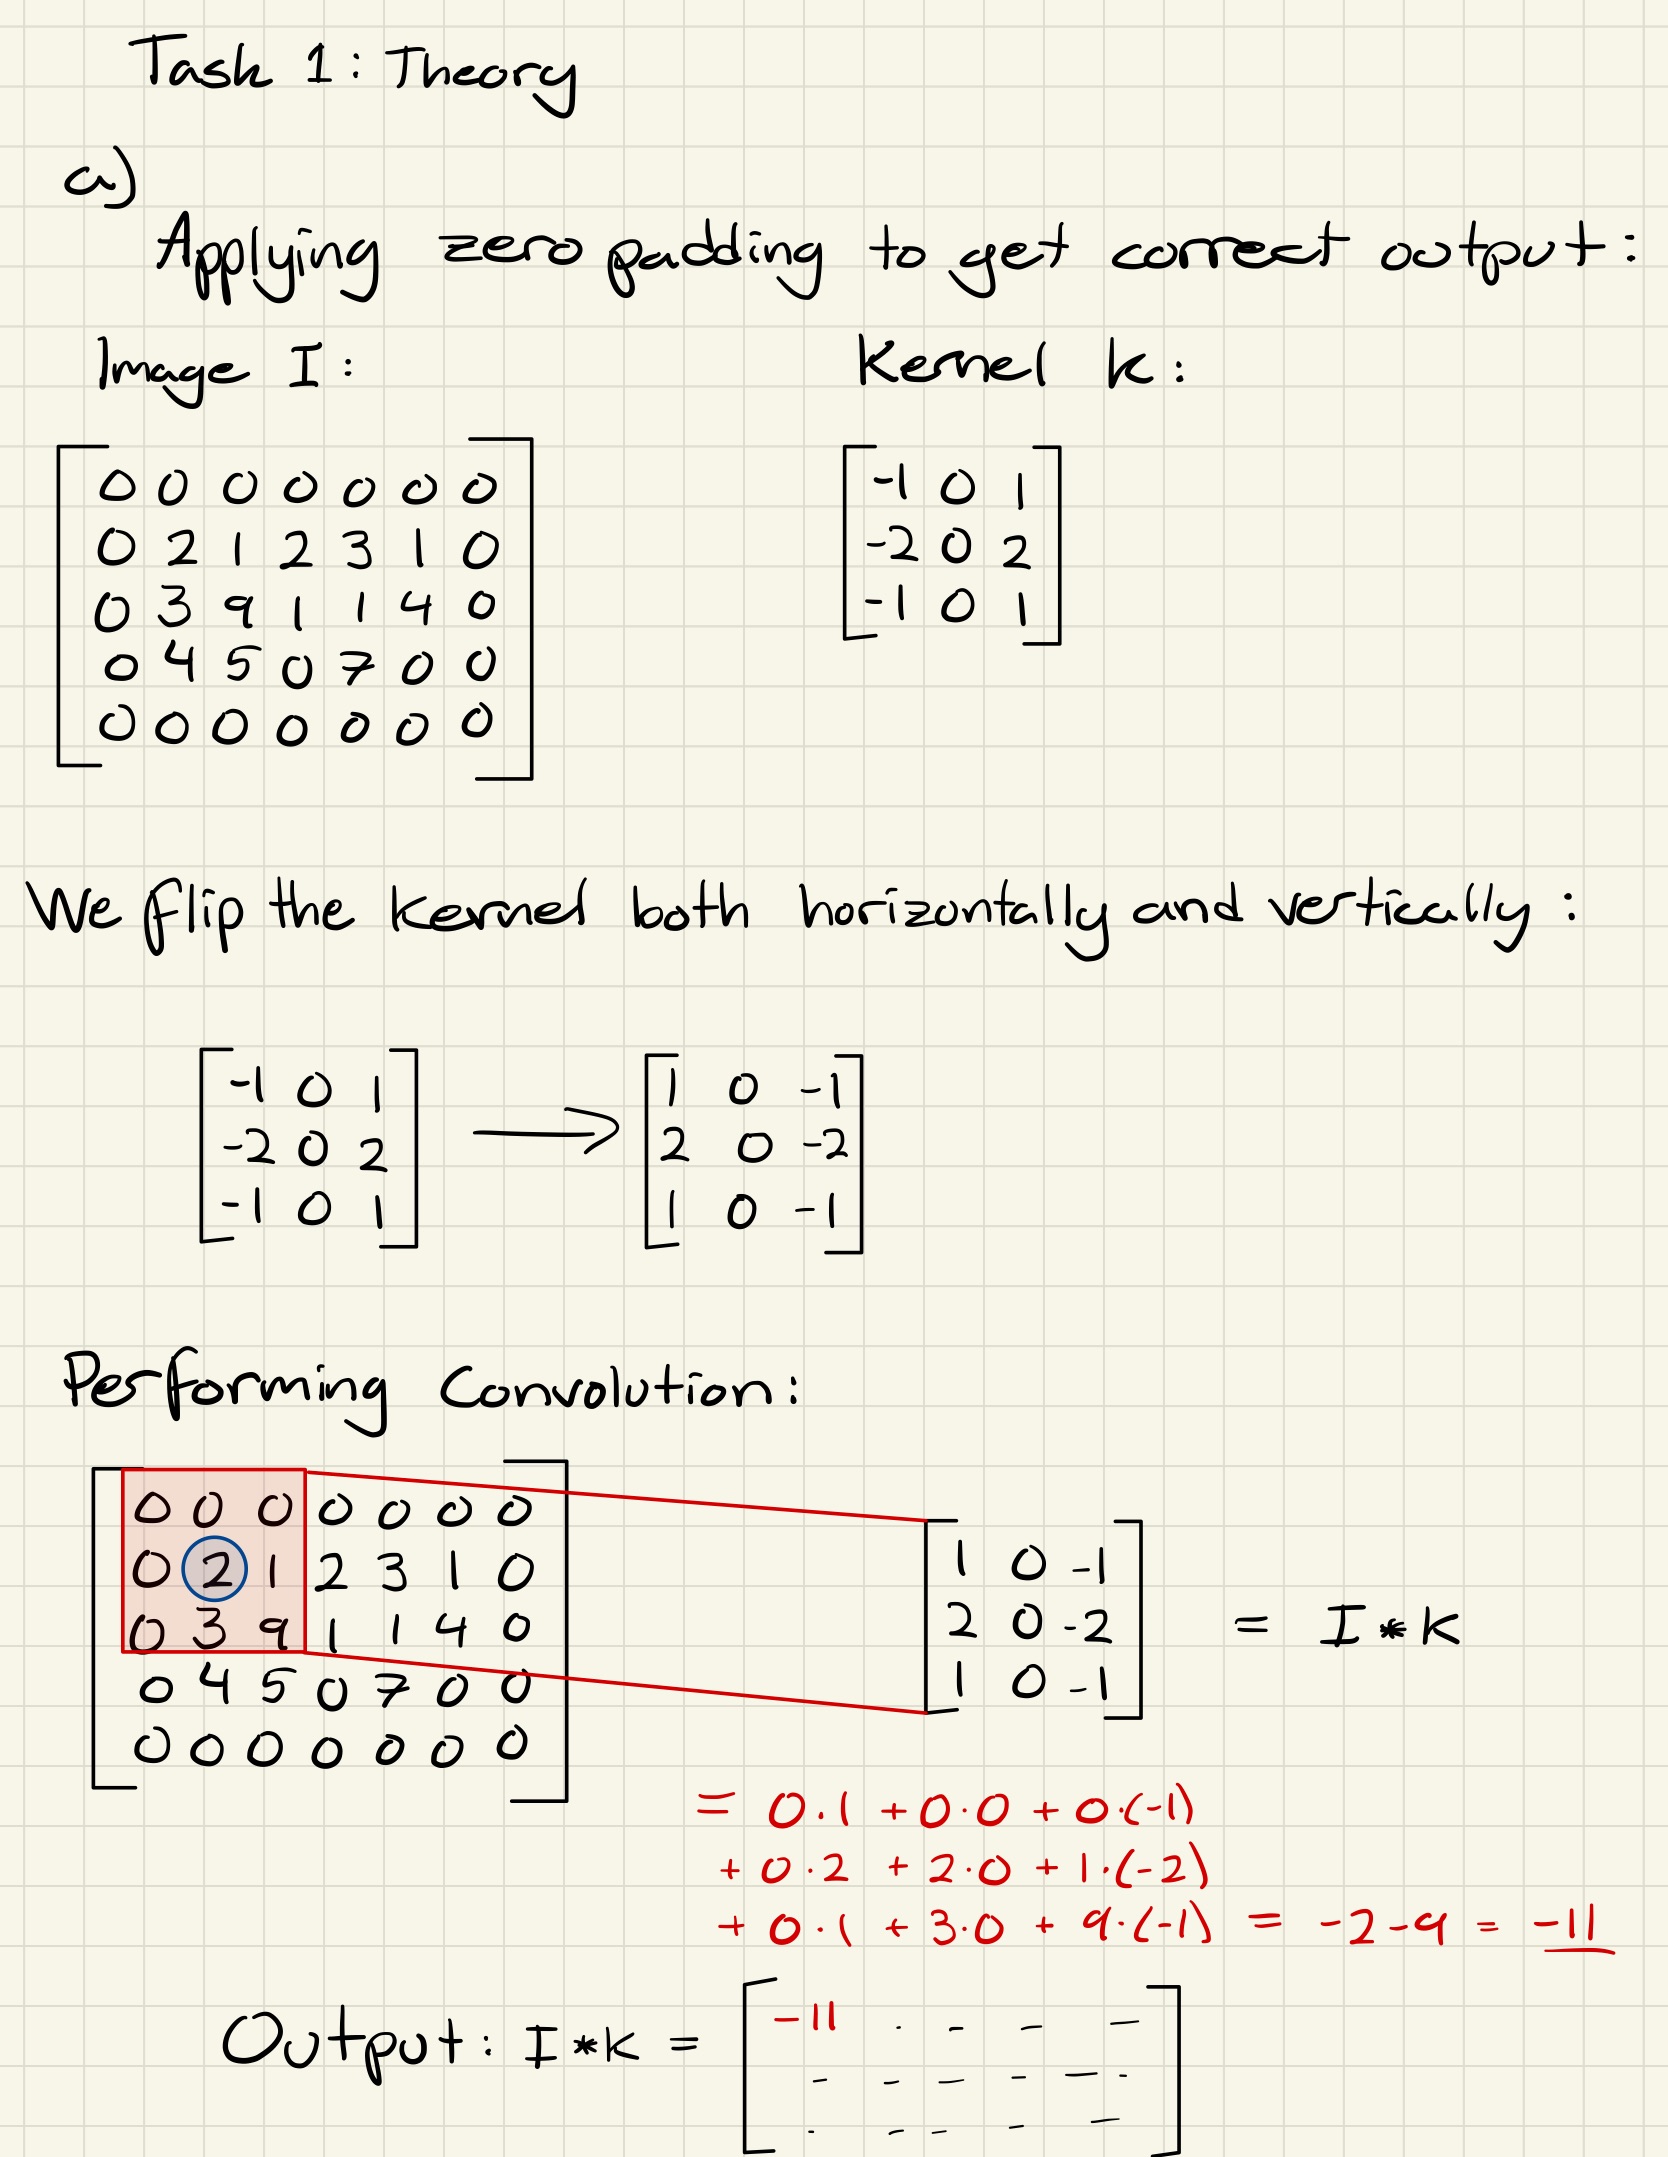 Task 1: Theory
a)
Applying zero padding to get correct output:
Image I: Kernel k:
0 0 0 0 0 0 0
0 2 1 2 3 1 0
0 3 9 1 1 4 0
0 4 5 0 7 0 0
0 0 0 0 0 0 0
-1 0 1
-2 0 2
-1 0 1
We flip the kernel both horizontally and vertically:
-1 0 1 → 1 0 -1
-2 0 2 2 0 -2
-1 0 1 1 0 -1
Performing Convolution:
0 0 0 0 0 0 0
0 2 1 2 3 1 0
0 3 9 1 1 4 0
0 4 5 0 7 0 0
0 0 0 0 0 0 0
1 0 -1
2 0 -2 = I * k
1 0 -1
= 0·1 + 0·0 + 0·(-1)
+ 0·2 + 2·0 + 1·(-2)
+ 0·1 + 3·0 + 9·(-1) = -2-9 = -11
Output: I * k =
-11 . - - -
- - - - - -
. - - - -